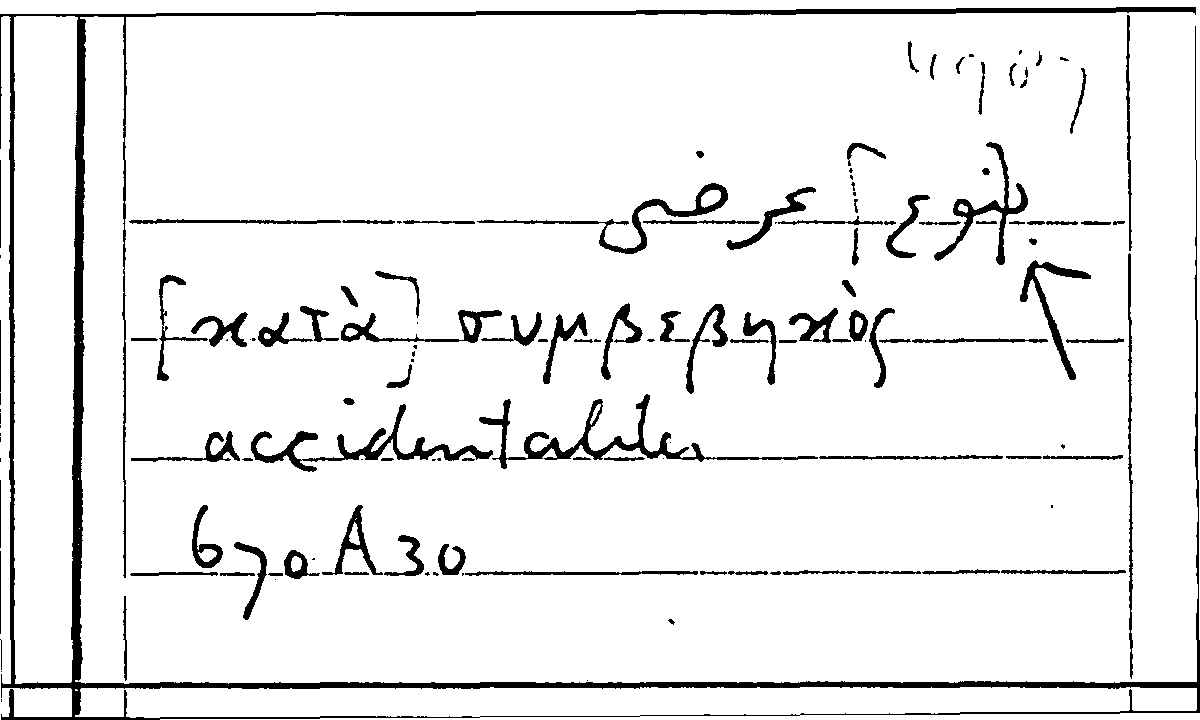 [بنوع] عرضى
[κατὰ] συμβεβηκὸς
accidentaliter
670 A 30